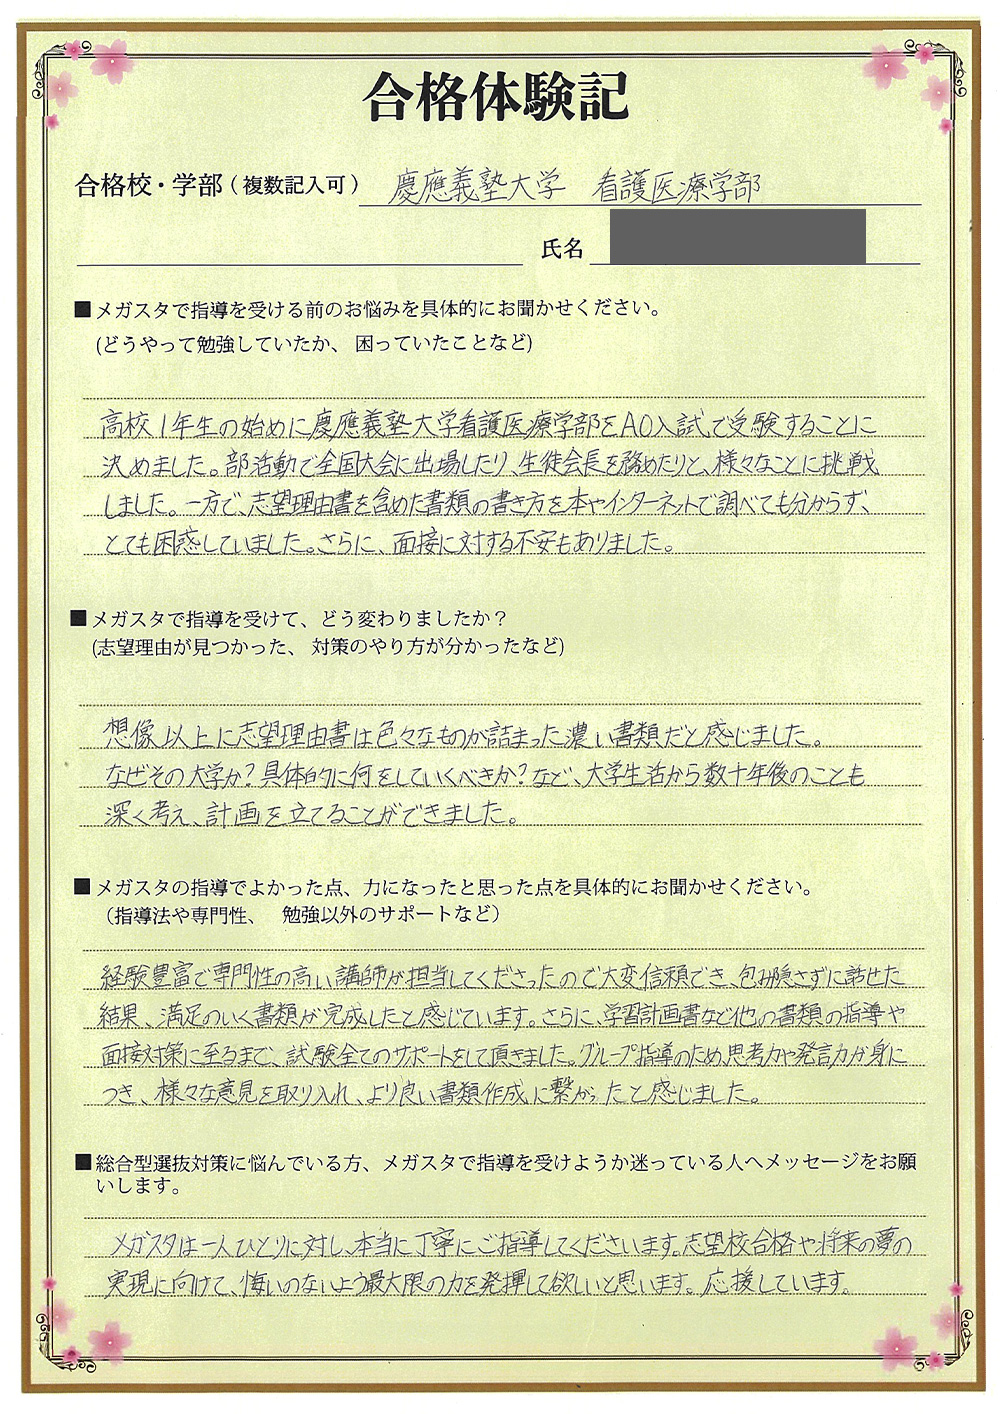 合格体験記
合格校・学部(複数記入可) 慶應義塾大学 看護医療学部
氏名
■メガスタで指導を受ける前のお悩みを具体的にお聞かせください。
(どうやって勉強していたか、困っていたことなど)
高校1年生の始めに慶應義塾大学看護医療学部をAO入試で受験することに
決めました。部活動で全国大会に出場したり、生徒会長を務めたりと、様々なことに挑戦
しました。一方で、志望理由書を含めた書類の書き方を本やインターネットで調べても分からず、
とても困惑していました。さらに、面接に対する不安もありました。
■メガスタで指導を受けて、どう変わりましたか？
(志望理由が見つかった、対策のやり方が分かったなど)
想像以上に志望理由書は色々なものが詰まった濃い書類だと感じました。
なぜその大学か？具体的に何をしていくべきか？など、大学生活から数十年後のことも
深く考え、計画を立てることができました。
■メガスタの指導でよかった点、力になったと思った点を具体的にお聞かせください。
(指導法や専門性、 勉強以外のサポートなど)
経験豊富で専門性の高い講師が担当してくださったので大変信頼でき、包み隠さずに話せた
結果、満足のいく書類が完成したと感じています。さらに、学習計画書など他の書類の指導や
面接対策に至るまで、試験全てのサポートをして頂きました。グループ指導のため思考力や発言力が身に
つき、様々な意見を取り入れ、より良い書類作成に繋がったと感じました。
■総合型選抜対策に悩んでいる方、メガスタで指導を受けようか迷っている人へメッセージをお願
いします。
メガスタは一人ひとりに対し、本当に丁寧にご指導してくださいます。志望校合格や将来の夢の
実現に向けて、悔いのないよう最大限の力を発揮して欲しいと思います。応援しています。